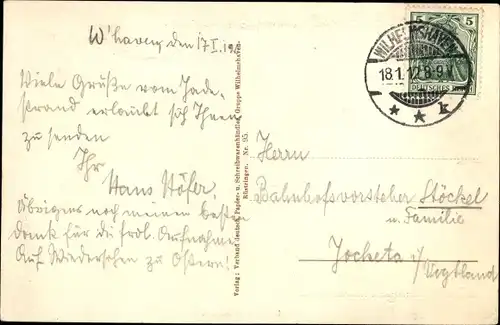 W'haven, den 17.I.12
Viele Grüße vom Jade-
strand erlaubt sich Ihnen
zu senden
Ihr
Hans Höfer.
Übrigens noch meinen besten
Dank für die frdl. Aufnahme
Auf Wiedersehen zu Ostern.
Verlag: Verband deutsch. Papier- u. Schreibwarenhändler, Gruppe Wilhelmshaven-
Rüstringen. Nr. 95.
5 5
DEUTSCHES REICH
WILHELMSHAVEN
18.1.12.8-9V.
* * k
Herrn
Bahnhofsvorsteher Stöckel
u. Familie
Jocketa i/
Vogtland